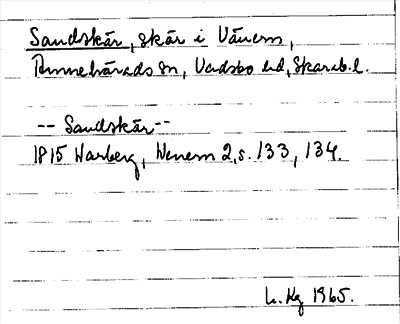 Sandskär, skär i Vänern,
Runnebärads sn, Vadsbo hd, Skarab.l.
-- Sandskär --
1815 Warberg, Wenern 2, s. 133, 134.
L. Kg 1965.